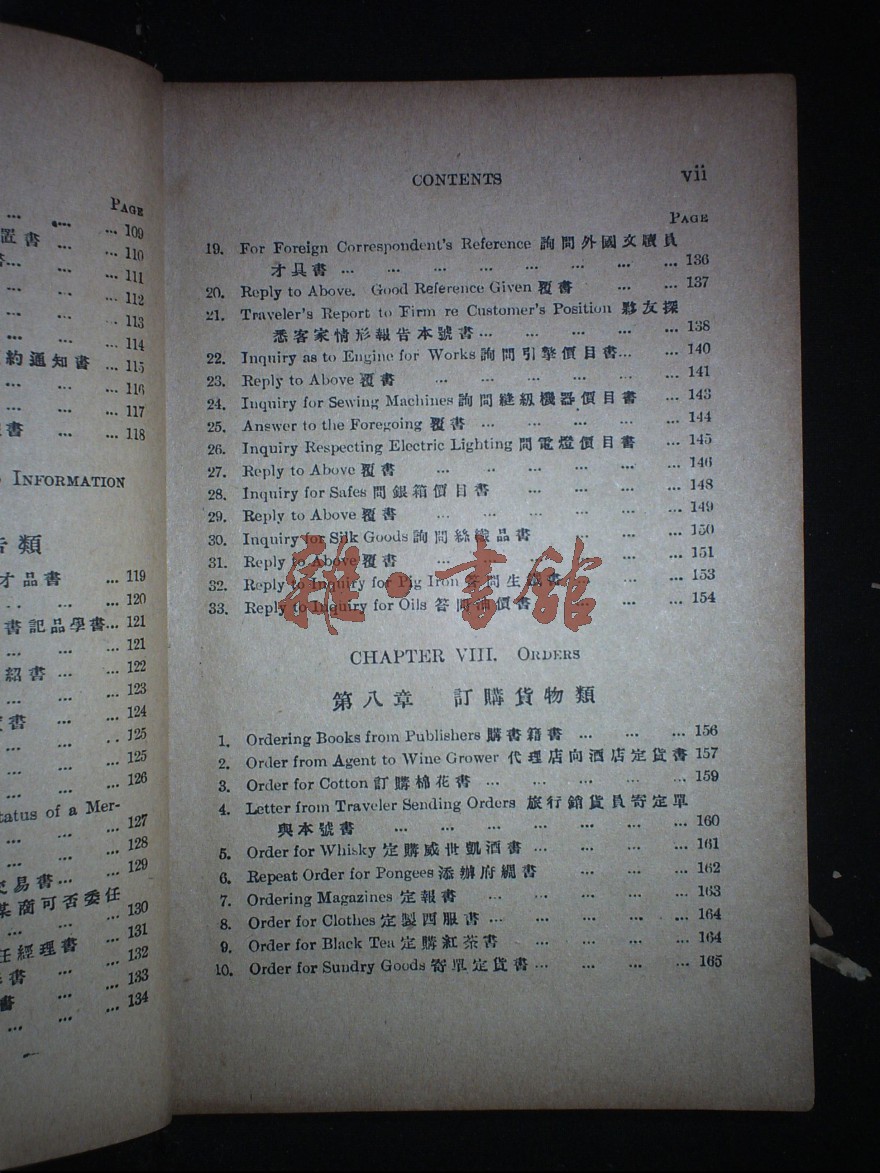 PAGE
... ... ... 109
置書 ... ... 110
書... ... ... 111
... ... ... 112
... ... ... 113
... ... ... 114
約通知書 ... 115
... ... ... 116
... ... ... 117
書 ... ... 118
INFORMATION
告類
才品書 ... 119
... ... ... 120
書記品學書... 121
... ... ... 121
紹書 ... ... 122
... ... ... 123
書 ... ... 124
... ... ... 125
... ... ... 125
... ... ... 126
tatus of a Mer-
... ... ... 127
... ... ... 128
交易書... ... 129
某商可否委任
... ... ... 130
任經理書 ... 131
書 ... ... 132
書 ... ... 133
... ... ... 134
CONTENTS vii
PAGE
19. For Foreign Correspondent's Reference 詢問外國文牘員
才具書 ... ... ... ... ... ... ... ... 136
20. Reply to Above. Good Reference Given 覆書 ... ... ... 137
21. Traveler's Report to Firm re Customer's Position 夥友探
悉客家情形報告本號書... ... ... ... ... 138
22. Inquiry as to Engine for Works 詢問引擎價目書... ... 140
23. Reply to Above 覆書 ... ... ... ... ... ... 141
24. Inquiry for Sewing Machines 詢問縫級機器價目書 ... 143
25. Answer to the Foregoing 覆書 ... ... ... ... ... 144
26. Inquiry Respecting Electric Lighting 問電燈價目書 ... 145
27. Reply to Above 覆書 ... ... ... ... ... ... 146
28. Inquiry for Safes 問銀箱價目書 ... ... ... ... 148
29. Reply to Above 覆書 ... ... ... ... ... ... 149
30. Inquiry for Silk Goods 詢問絲織品書 ... ... ... 150
31. Reply to Above 覆書 ... ... ... ... ... ... 151
32. Reply to Inquiry for Pig Iron 答問生鐵書... ... ... 153
33. Reply to Inquiry for Oils 答問油價書 ... ... ... 154
雜·書館
CHAPTER VIII. ORDERS
第八章 訂購貨物類
1. Ordering Books from Publishers 購書籍書 ... ... ... 156
2. Order from Agent to Wine Grower 代理店向酒店定貨書 157
3. Order for Cotton 訂購棉花書 ... ... ... ... ... 159
4. Letter from Traveler Sending Orders 旅行銷貨員寄定單
與本號書 ... ... ... ... ... ... ... 160
5. Order for Whisky 定購威世凱酒書 ... ... ... ... 161
6. Repeat Order for Pongees 添辦府綢書 ... ... ... 162
7. Ordering Magazines 定報書 ... ... ... ... ... 163
8. Order for Clothes 定製西服書 ... ... ... ... ... 164
9. Order for Black Tea 定購紅茶書 ... ... ... ... 164
10. Order for Sundry Goods 寄單定貨書 ... ... ... ... 165